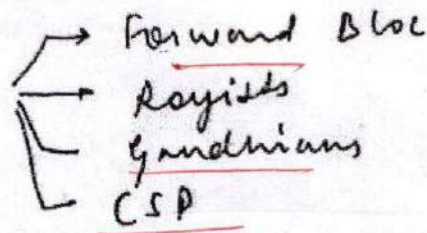 Forward Bloc
Royists
Gandhians
CSP